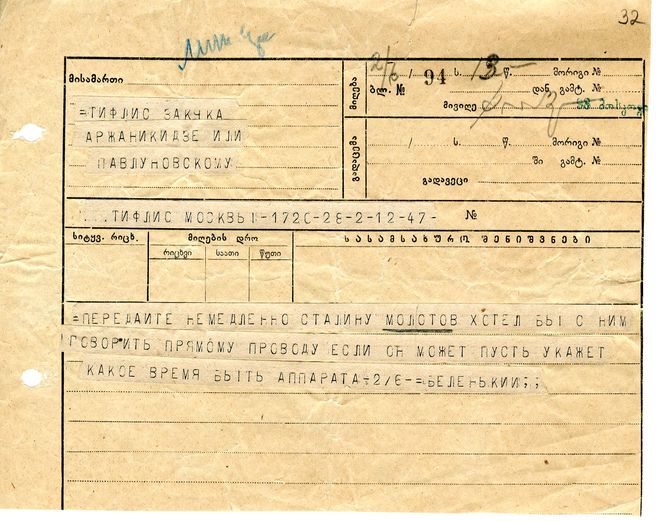 32
მისამართი
=ТИФЛИС ЗАКУКА
АРЖАНИКИДЗЕ ИЛИ
ПАВЛУНОВСКОМУ
მიღება
2/6 / ს. 13— წ. მორიგი №
ბლ. № 94 დან გამტ. №
მივიღე
გადაცემა
/ ს. წ. მორიგი №
ში გამტ. №
გადავეცი
ТИФЛИС МОСКВЫ-1720-28-2-12-47- №
სიტყვ. რიცხ.
მიღების დრო
რიცხვი საათი წუთი
სასამსახურო შენიშვნები
=ПЕРЕДАИТЕ НЕМЕДЛЕННО СТАЛИНУ МОЛОТОВ ХОТЕЛ БЫ С НИМ
ГОВОРИТЬ ПРЯМОМУ ПРОВОДУ ЕСЛИ ОН МОЖЕТ ПУСТЬ УКАЖЕТ
КАКОЕ ВРЕМЯ БЫТЬ АППАРАТА-2/6-=БЕЛЕНЬКИИ;;